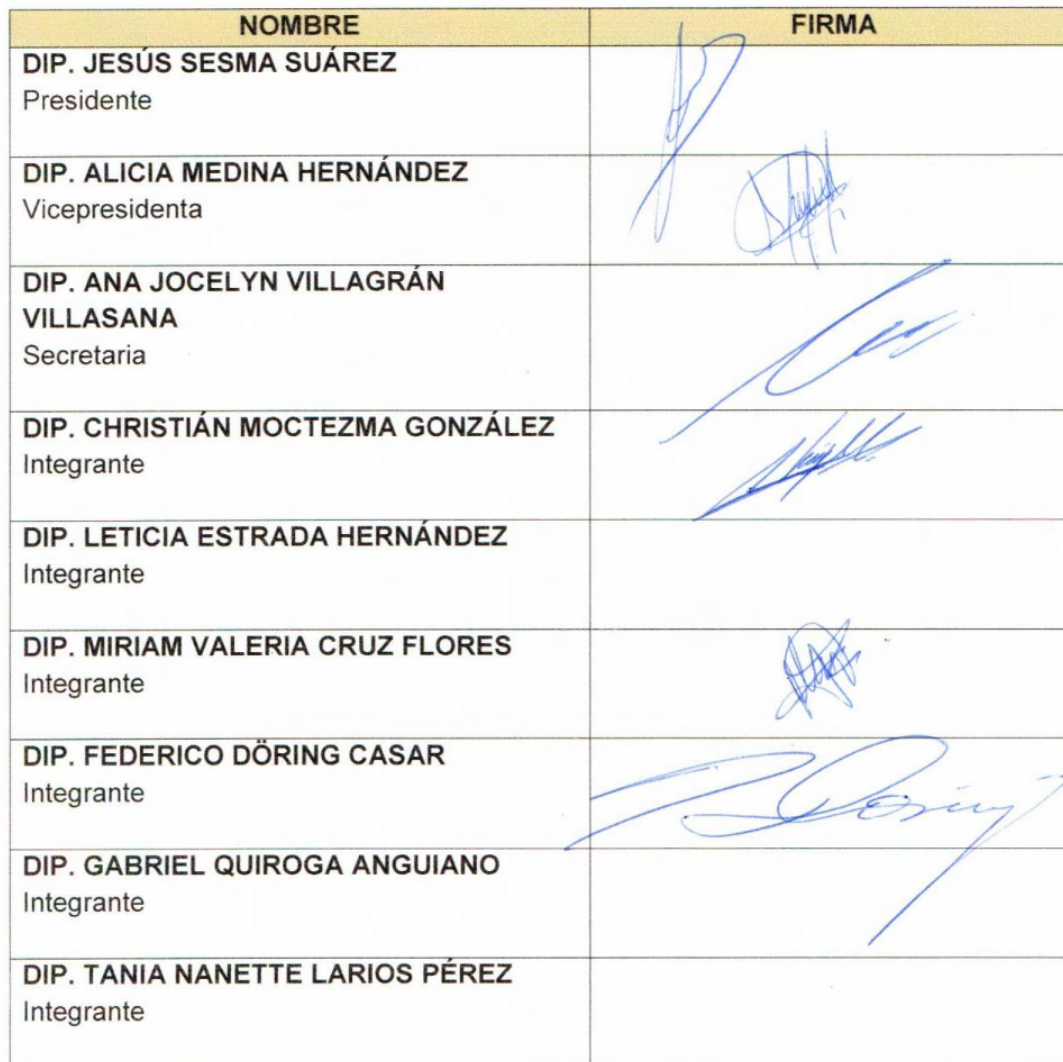 NOMBRE FIRMA
DIP. JESÚS SESMA SUÁREZ
Presidente
DIP. ALICIA MEDINA HERNÁNDEZ
Vicepresidenta
DIP. ANA JOCELYN VILLAGRÁN
VILLASANA
Secretaria
DIP. CHRISTIÁN MOCTEZMA GONZÁLEZ
Integrante
DIP. LETICIA ESTRADA HERNÁNDEZ
Integrante
DIP. MIRIAM VALERIA CRUZ FLORES
Integrante
DIP. FEDERICO DÖRING CASAR
Integrante
DIP. GABRIEL QUIROGA ANGUIANO
Integrante
DIP. TANIA NANETTE LARIOS PÉREZ
Integrante